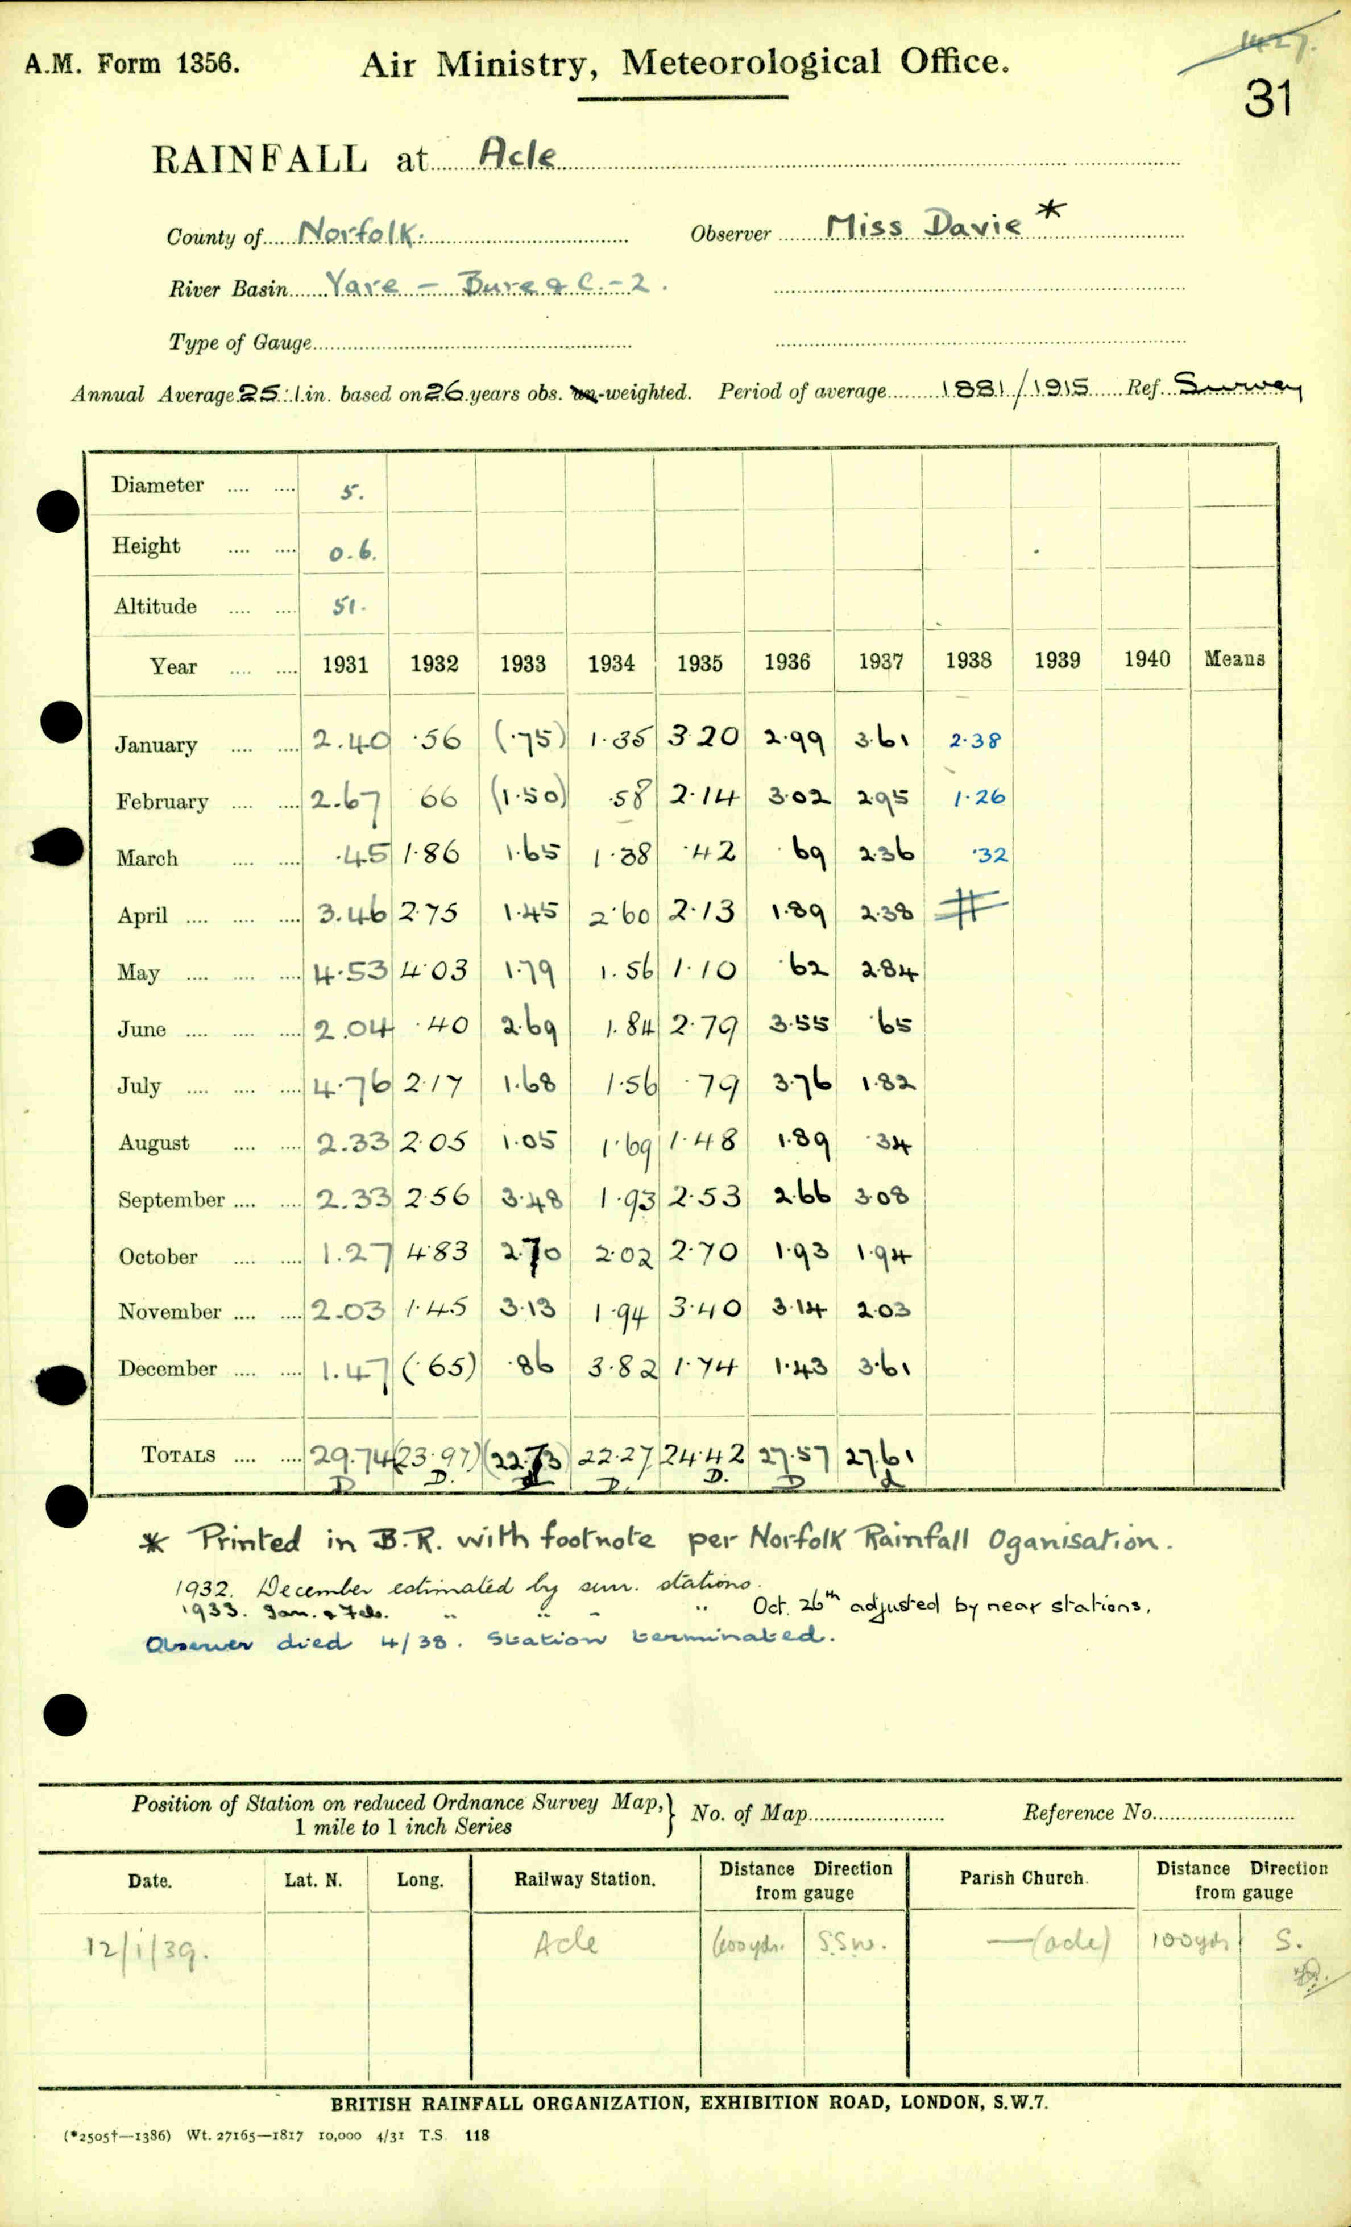 1427.
A.M. Form 1356. Air Ministry, Meteorological Office.
31
RAINFALL at Acle
County of Norfolk. Observer Miss Davie *
River Basin Yare - Bure & C. - 2.
Type of Gauge
Annual Average 25.1 in. based on 26 years obs. un-weighted. Period of average 1881/1915 Ref. Survey
Diameter .... .... 5.
Height .... .... 0.6.
Altitude .... .... 51.
Year .... .... 1931 1932 1933 1934 1935 1936 1937 1938 1939 1940 Means
January .... .... 2.40 .56 (.75) 1.35 3.20 2.99 3.61 2.38
February .... .... 2.67 66 (1.50) .58 2.14 3.02 2.95 1.26
March .... .... .45 1.86 1.65 1.38 .42 .69 2.36 .32
April .... .... .... 3.46 2.75 1.45 2.60 2.13 1.89 2.38 #
May .... .... .... 4.53 4.03 1.79 1.56 1.10 .62 2.84
June .... .... .... 2.04 .40 2.69 1.84 2.79 3.55 .65
July .... .... .... 4.76 2.17 1.68 1.56 .79 3.76 1.82
August .... .... 2.33 2.05 1.05 1.69 1.48 1.89 .34
September .... .... 2.33 2.56 3.48 1.93 2.53 2.66 3.08
October .... .... 1.27 4.83 2.70 2.02 2.70 1.93 1.94
November .... .... 2.03 1.45 3.13 1.94 3.40 3.14 2.03
December .... .... 1.47 (.65) .86 3.82 1.74 1.43 3.61
TOTALS .... .... 29.74 (23.97) (22.73) 22.27 24.42 27.57 27.61
D D. D. D. D
* Printed in B.R. with footnote per Norfolk Rainfall Oganisation.
1932. December estimated by surr. stations.
1933. Jan. & Feb. " " " " Oct. 26th adjusted by near stations.
Observer died 4/38. Station terminated.
Position of Station on reduced Ordnance Survey Map, } No. of Map Reference No.
1 mile to 1 inch Series
Date. Lat. N. Long. Railway Station. Distance Direction from gauge Parish Church. Distance Direction from gauge
12/1/39. Acle 600yds. S.S.W. —(acle) 100yds S.
BRITISH RAINFALL ORGANIZATION, EXHIBITION ROAD, LONDON, S.W.7.
(*2505†—1386) Wt. 27165—1817 10,000 4/31 T.S. 118